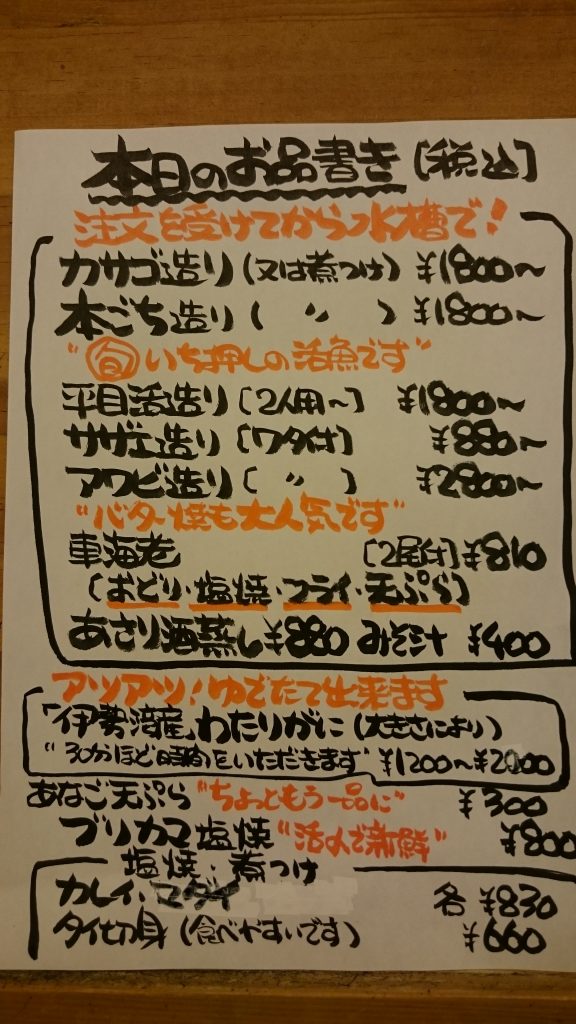 本日のお品書き［税込］
注文を受けてから水槽で！
カサゴ造り（又は煮つけ）¥1800〜
本ごち造り（ 〃 ）¥1800〜
"旬いち押しの活魚です"
平目活造り［2人用〜］¥1800〜
サザエ造り［ワタ付］¥880〜
アワビ造り［ 〃 ］¥2800〜
"バター焼も大人気です"
車海老［2尾付］¥810
（おどり・塩焼・フライ・天ぷら）
あさり酒蒸し¥880 みそ汁 ¥400
アツアツ！ゆでたて出来ます
「伊勢湾産」わたりがに（大きさにより）
"30分ほど時間をいただきます" ¥1200〜¥2000
あなご天ぷら"ちょっともう一品に" ¥300
ブリカマ塩焼"活〆で新鮮" ¥800
塩焼・煮つけ
カレイ・マダイ 各¥830
タイ切身（食べやすいです）¥660